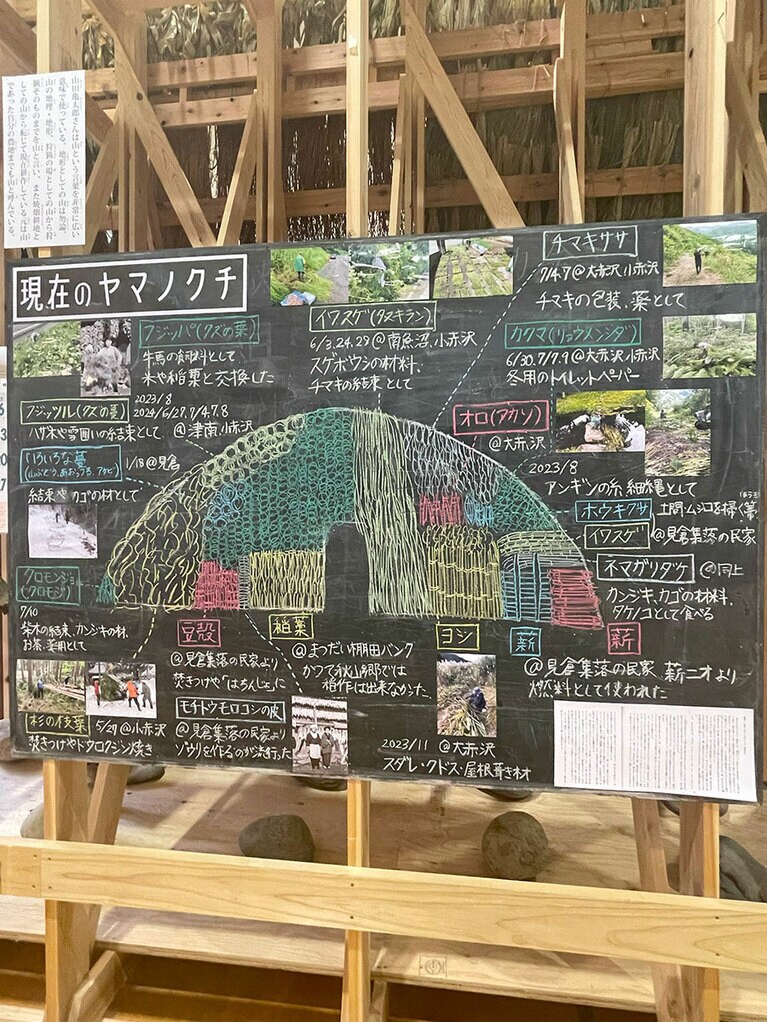 山田亀太郎さんは山という言葉を非常に広い
意味で使っている。地形としての山は勿論、
山の地理・地形、狩猟の場としての山から狩
猟そのものまでを山と言い、また焼畑耕地と
しての山から転じて現在耕作している元は山
であった自分の農地までも山と呼んでいる。
現在のヤマノクチ
フジッパ(クズの葉)
牛馬の飼料として
米や稲葉と交換した
2023/8
2024/6/27,7/4,7,8
フジッツル(クズの蔓)
ハサ木や雪囲いの結束として @津南,小赤沢
いろいろな蔓
(山ぶどう,あおつづら,アケビ)
1/18@見倉
結束やカゴの材として
クロモンジョ
(クロモジ)
7/10
柴木の結束、カンジキの材、
お茶、薬用として
杉の枝葉
5/29@小赤沢
焚きつけやドウロクジン焼き
イワスゲ(タヌキラン)
6/3,24,29@南魚沼,小赤沢
スゲボウシの材料、
チマキの結束として
チマキササ
7/4,7@大赤沢,小赤沢
チマキの包装、薬として
カクマ(リョウメンシダ)
6/30,7/7,9@大赤沢,小赤沢
冬用のトイレットペーパー
オロ(アカソ)
@大赤沢
2023/8
アンギンの糸、細縄として
ホウキクサ
土間、ムシロを掃く箒
イワスゲ
@見倉集落の民家
ネマガリダケ
@同上
カンジキ、カゴの材料、
タケノコとして食べる
豆殻
@見倉集落の民家より
焚きつけや「はちんじぇ」に
モチトウモロコシの皮
@見倉集落の民家より
ゾウリを作るのが流行った
稲葉
@まつだい棚田バンク
かつて秋山郷では
稲作は出来なかった。
ヨシ
2023/11 @大赤沢
スダレ・クドス・屋根葺き材
薪
薪
@見倉集落の民家 薪ニオより
燃料として使われた